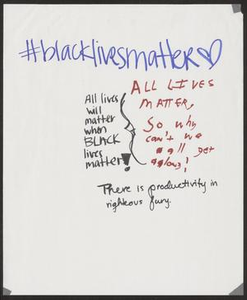 #blacklivesmatter♡
ALL LIVES
MATTER,
So why
can't we
all get
along!
All lives
will
matter
when
BLACK
lives
matter!
There is productivity in
righteous fury.